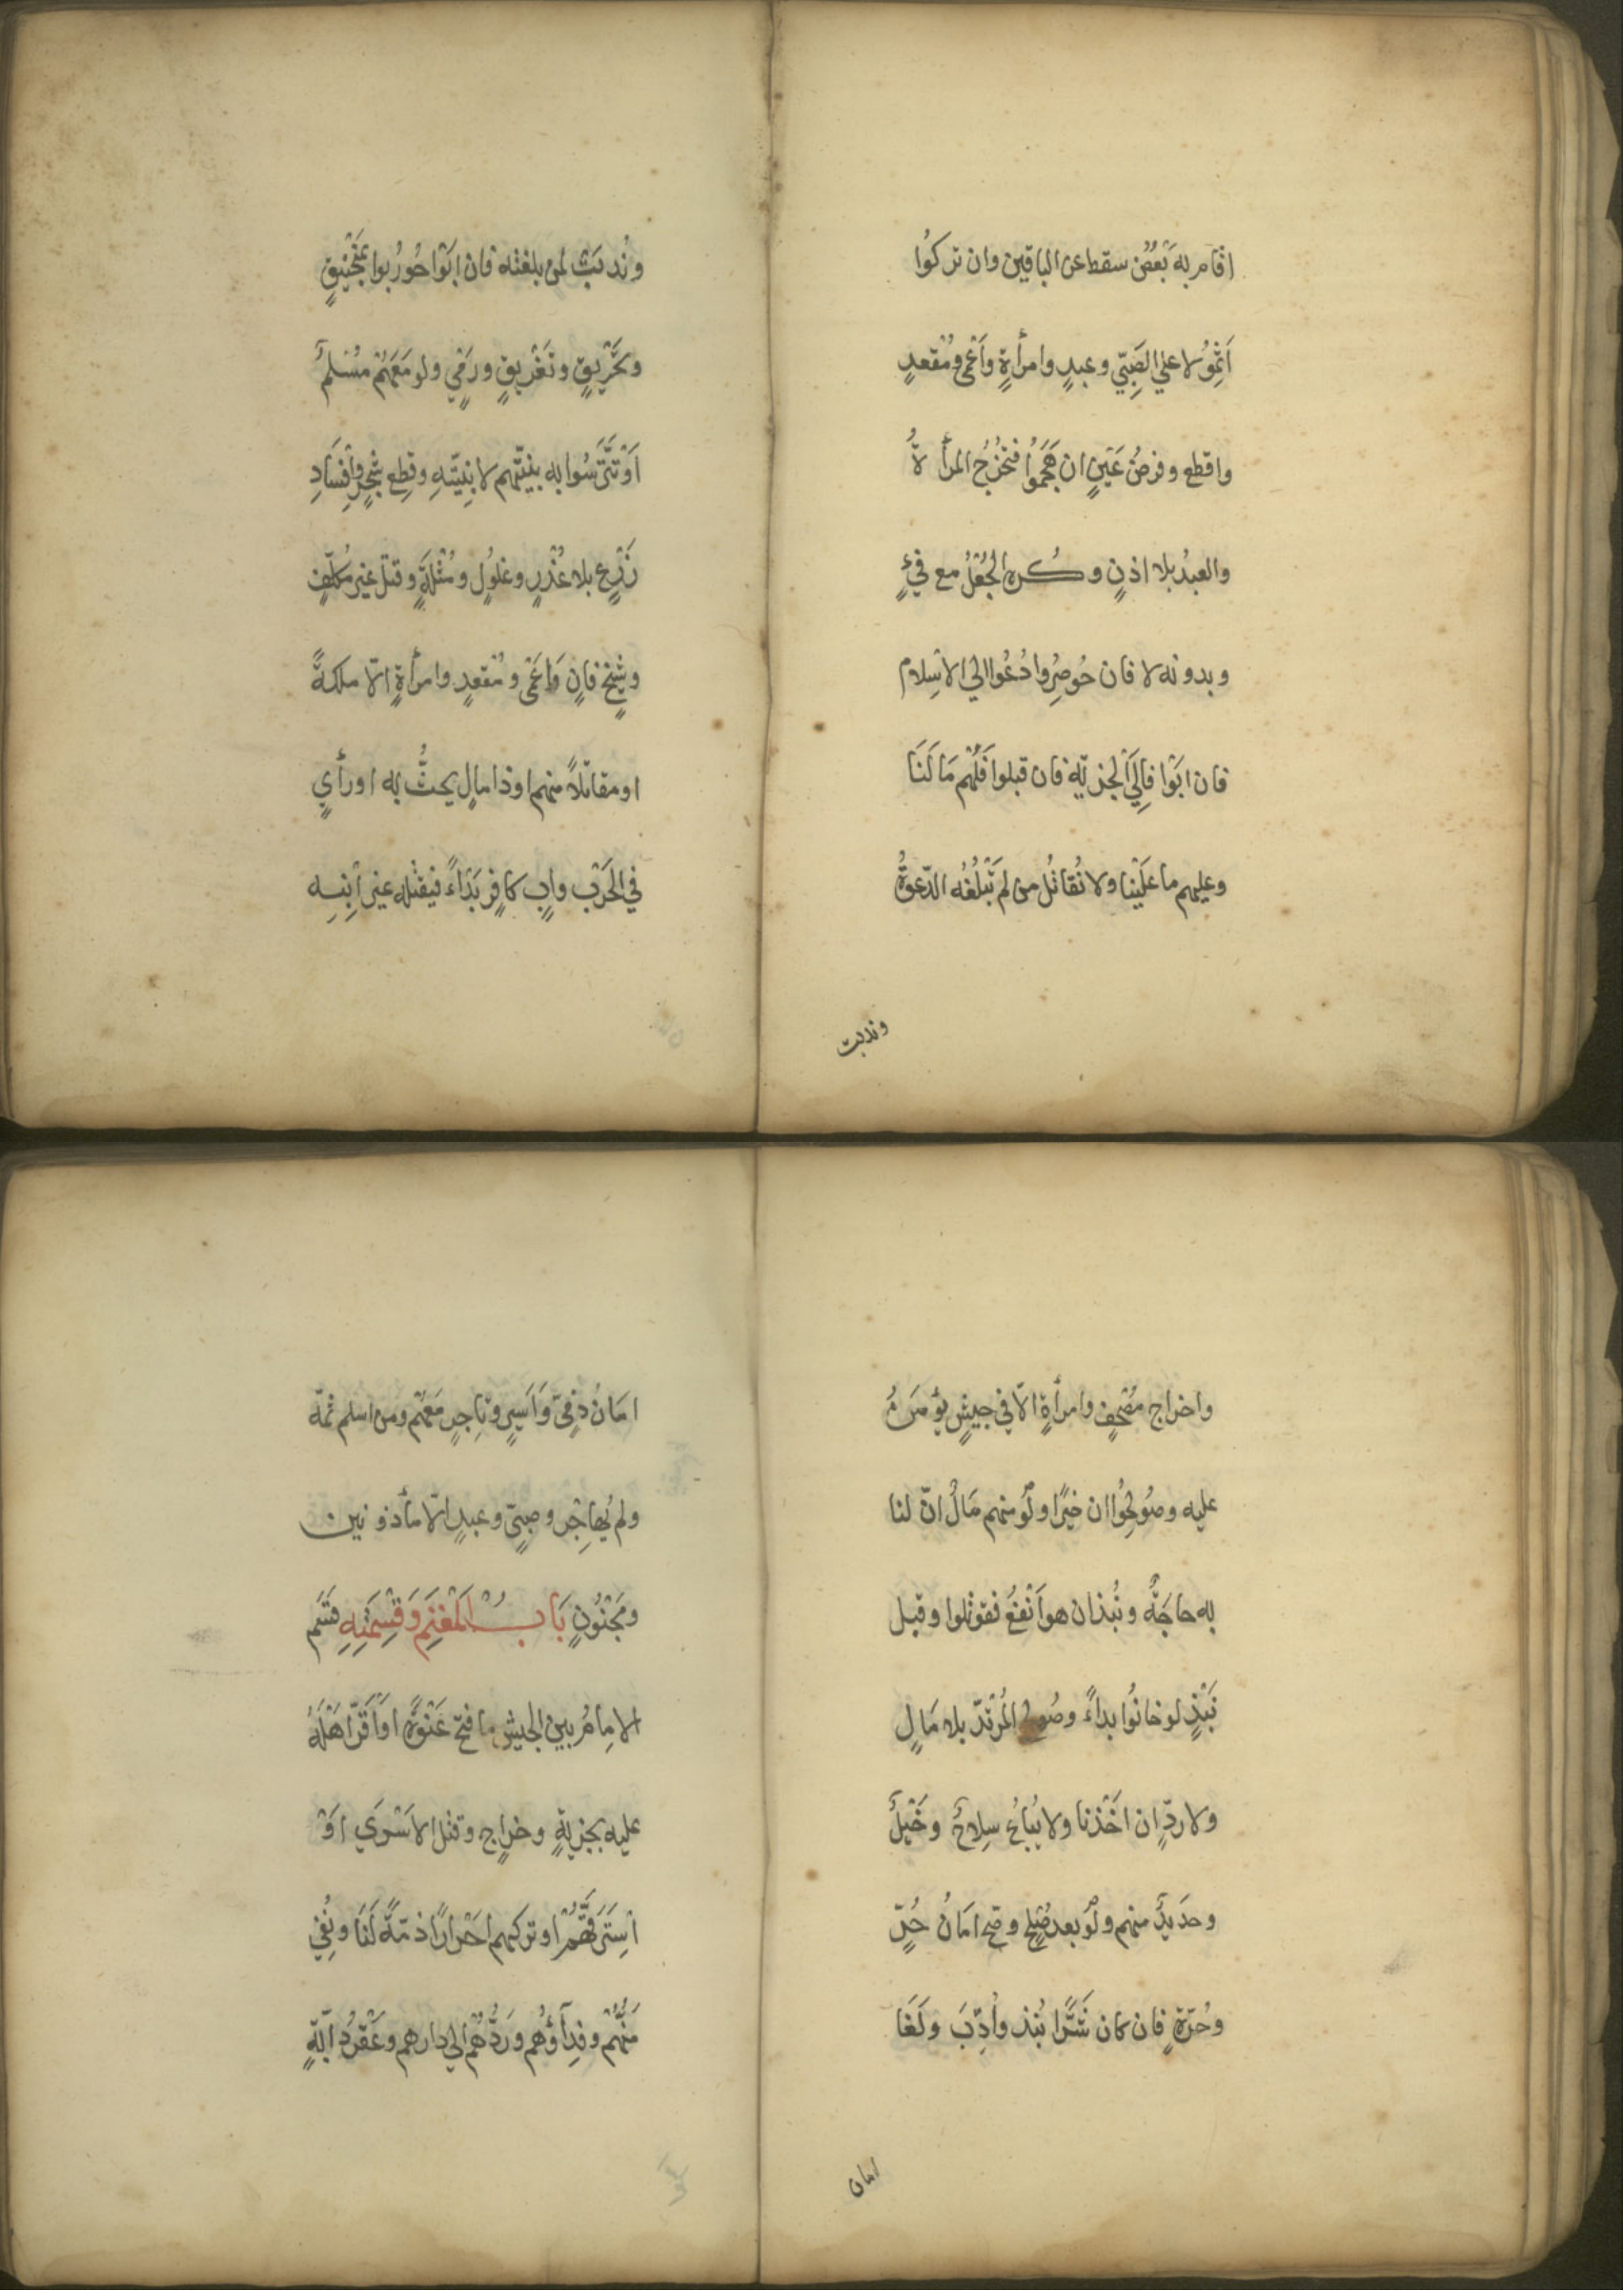 اقام به بَعْضٌ سقط عن الباقين وان تركُوا
اَثِمُوْا لا علي الصَبِيّ وعبدٍ وامرأةٍ واَعْمٰى ومُقْعدٍ
واقطع وفرضُ عَيْنٍ ان هَجَمُوا فتَخْرُجُ المرأةُ
والعبدُ بلا اذنٍ وكُره الجُعْلُ مع فَيْءٍ
وبدونه لا فان حُوصِرُوا دُعُوا الي الاسْلام
فان ابَوْا فاِلَي الجزيَةِ فان قبلوا فَلَهُم مَا لَنَا
وعليهم ما عَلَيْنا ولا نُقاتُل من لم تَبْلُغْه الدّعوةُ
وندبت
ونُدبَتْ لمن بلغته فان ابَوْا حُورِبوا بمَنْجَنِيقٍ
وتَحْرِيقٍ وتَغْرِيقٍ ورَمْيٍ ولو مَعَهُم مُسْلمٌ
اَوْ تَتَرَّسُوا به بنيّتهم لا بنِيَّتِهِ وقطع شجرٍ واِفسَادِ
زَرْعٍ بلا غُدْرٍ وغلُولٍ ومُثْلَةٍ وقتل غير مُكلّفٍ
وشيْخٍ فانٍ وَاَعْمٰى ومُقعدٍ وامرأةٍ الّا ملكةً
او مقاتلاً منهم او ذا مالٍ يحثُّ به او رأيٍ
في الحَرْب وابٍ كافرٍ بَدْاءً فيقتله غير اْبنِه
واخراج مُصْحَفٍ وامرأةٍ الّا في جيشٍ يؤمَنُ
عليه وصُولِحُوا ان خيْرًا ولَوْ منهم مَالٌ انّ لنا
به حاجَةٌ ونُبذ ان هو اَنْفعُ فقوتلوا وقبل
نَبْذٍ لو خانُوا بداءً وصُولح المُرتدّ بلا مَالٍ
ولا ردّ ان اخَذْنا ولا يُباعُ سِلاحٌ وخَيْلٌ
وحدَيدٌ منهم ولَوْ بعد صُلْحٍ وصح امَانُ حُرٍّ
وحُرّةٍ فان كان شَرًّا نُبذ واُدِّبَ وَلَغَا
امان
امَانُ ذِمّيٍ وَاَسيرٍ وتاجِرٍ مَعَهُم ومن اسلم ثمّه
ولم يُهاجِرْ وصبِيٍّ وعبدٍ الّا مأذونين
ومَجْنُونٍ بَابُ الْمَغْنَمِ وَقِسْمَتِهِ قسَم
الامامُ بين الجيش ما فتح عَنْوَةً اوْ اَقرَّ اهْلَهُ
عليه بجزيةٍ وخراجٍ وقتل الاسْرَي اوْ
اْستَرَقَّهُمْ او تركهم احْرارًا ذمّةً لَنَا ونُفِي
مَنُّهُم وفدِاؤُهُم ورَدُّهُم الي دارهم وعَقْرُ دابّةٍ